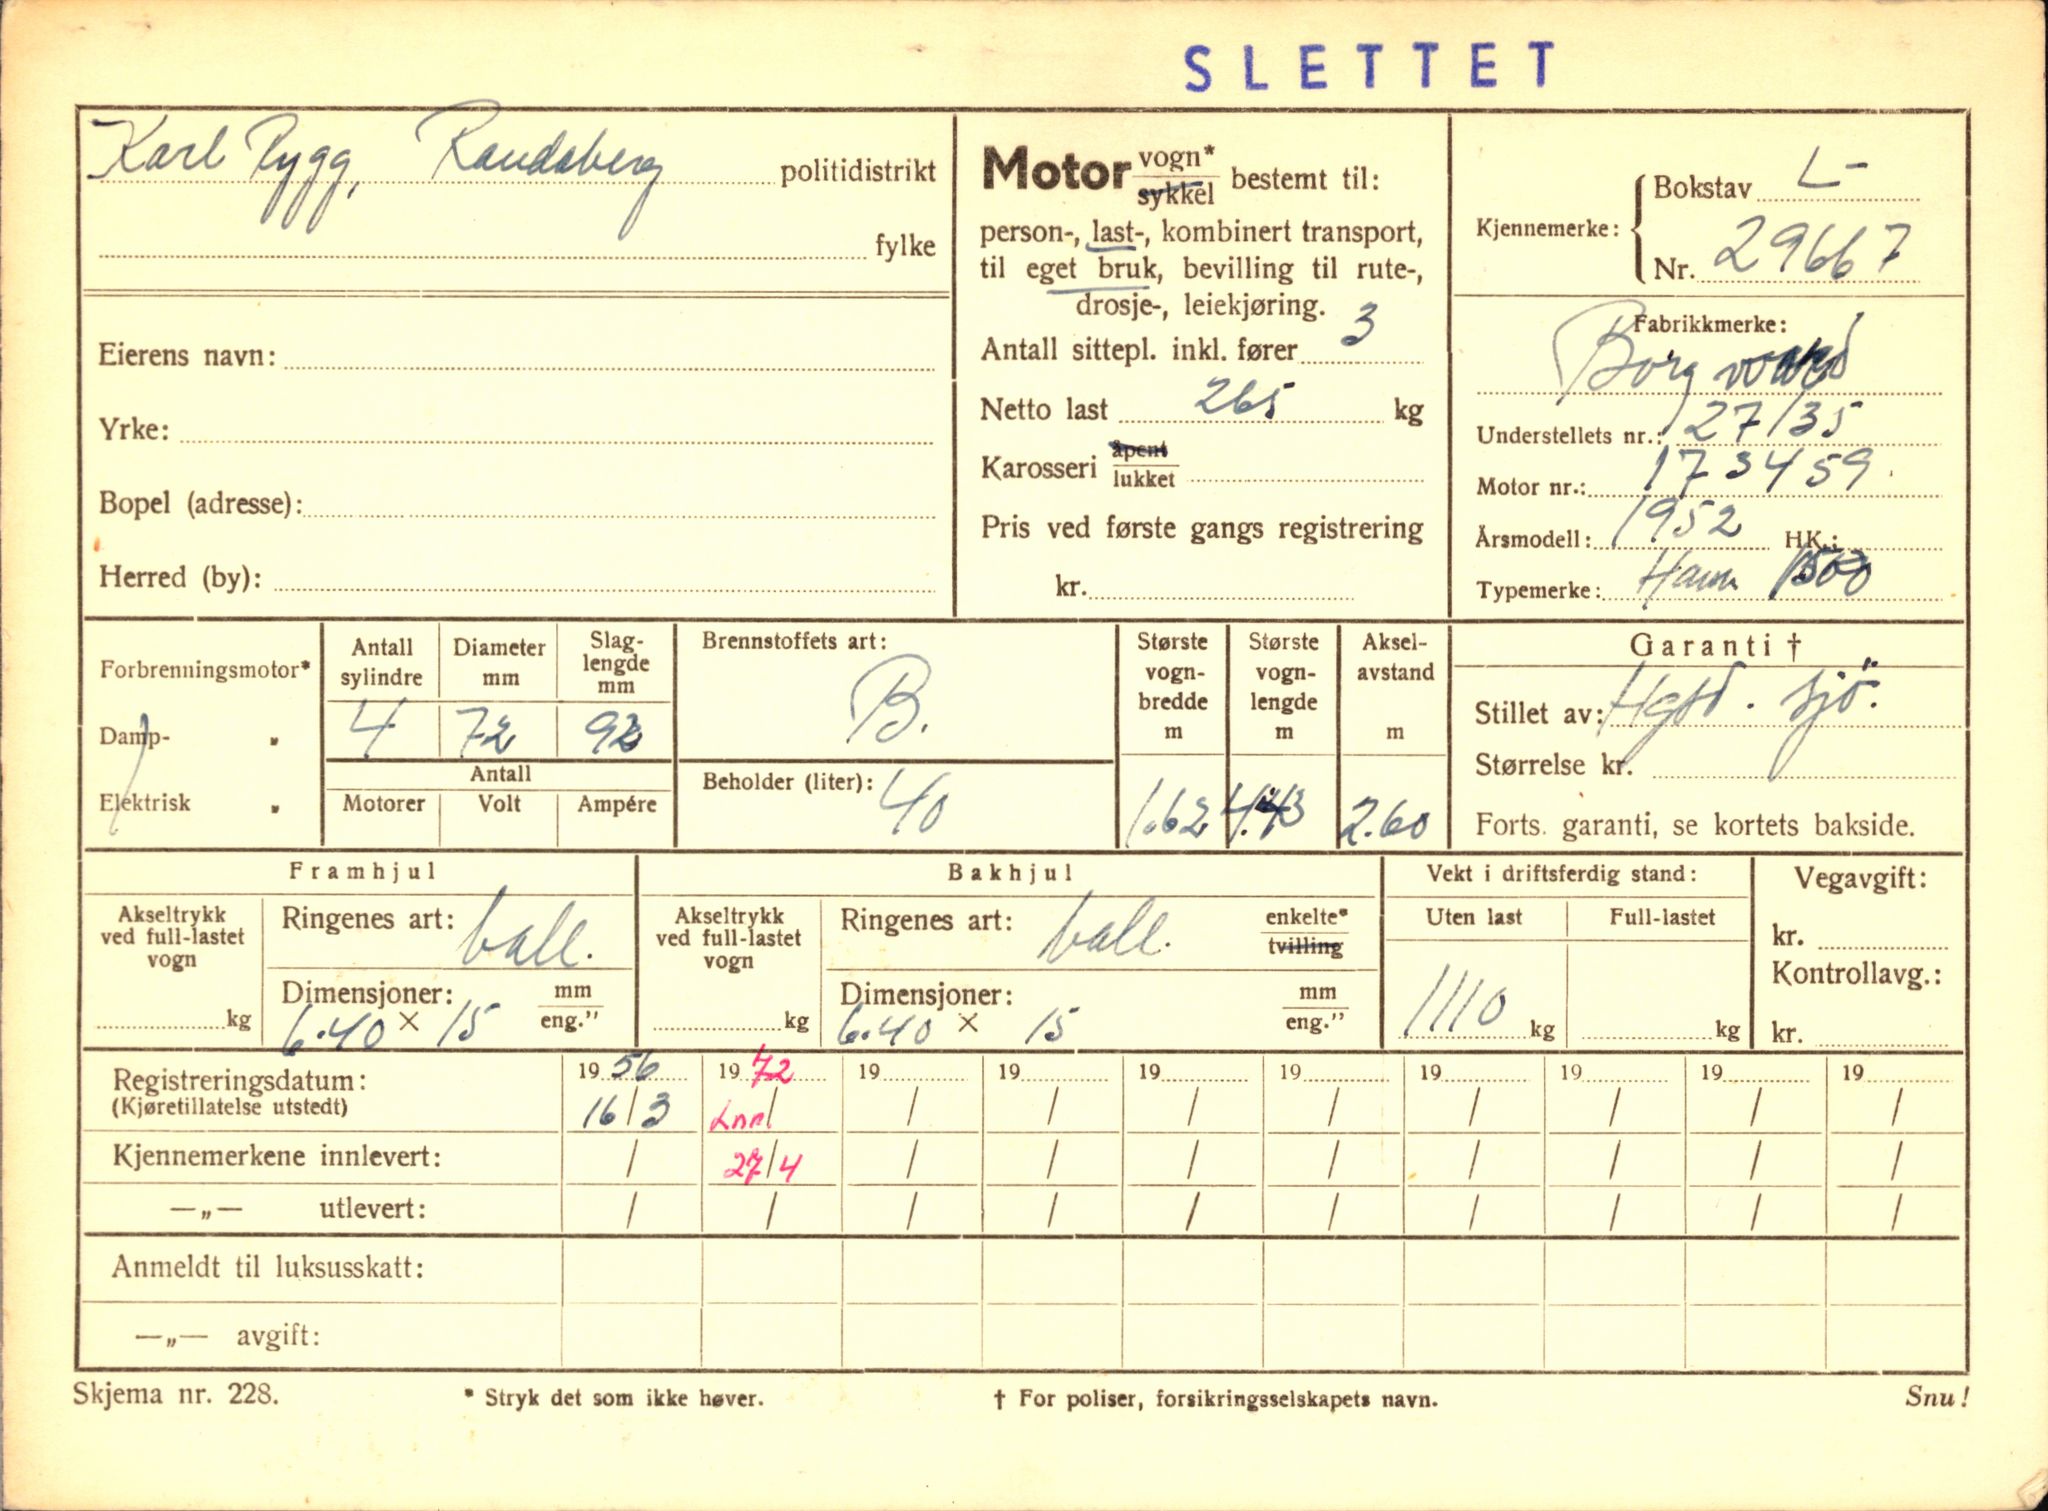 SLETTET
Karl Rygg, Randaberg politidistrikt
fylke
Eierens navn:
Yrke:
Bopel (adresse):
Herred (by):
Motor vogn*
sykkel bestemt til:
person-, last-, kombinert transport,
til eget bruk, bevilling til rute-,
drosje-, leiekjøring.
Antall sittepl. inkl. fører 3
Netto last 265 kg
Karosseri åpent
lukket
Pris ved første gangs registrering
kr.
Kjennemerke: Bokstav L-
Nr. 29667
Fabrikkmerke:
Borgward
Understellets nr.: 27/35
Motor nr.: 173459
Årsmodell: 1952 HK.:
Typemerke: 1500
Forbrenningsmotor*
Damp- "
Elektrisk "
Antall sylindre 4
Diameter mm 72
Slag-lengde mm 92
Antall
Motorer Volt Ampére
Brennstoffets art:
B.
Beholder (liter): 40
Største vogn-bredde m 1.62
Største vogn-lengde m 4.43
Aksel-avstand m 2.60
Garanti †
Stillet av: sjö.
Størrelse kr.
Forts. garanti, se kortets bakside.
Framhjul
Akseltrykk
ved full-lastet
vogn
kg
Ringenes art: ball.
Dimensjoner: mm
6.40 × 15 eng."
Bakhjul
Akseltrykk
ved full-lastet
vogn
kg
Ringenes art: ball. enkelte*
tvilling
Dimensjoner: mm
6.40 × 15 eng."
Vekt i driftsferdig stand:
Uten last Full-lastet
1110 kg kg
Vegavgift:
kr.
Kontrollavg.:
kr.
Registreringsdatum: 19 56 19 72 19 19 19 19 19 19 19 19
(Kjøretillatelse utstedt) 16/3 Lnn/ / / / / / / / /
Kjennemerkene innlevert: / 27/4 / / / / / / / /
—„— utlevert: / / / / / / / / / /
Anmeldt til luksusskatt:
—„— avgift:
Skjema nr. 228. * Stryk det som ikke høver. † For poliser, forsikringsselskapets navn. Snu!